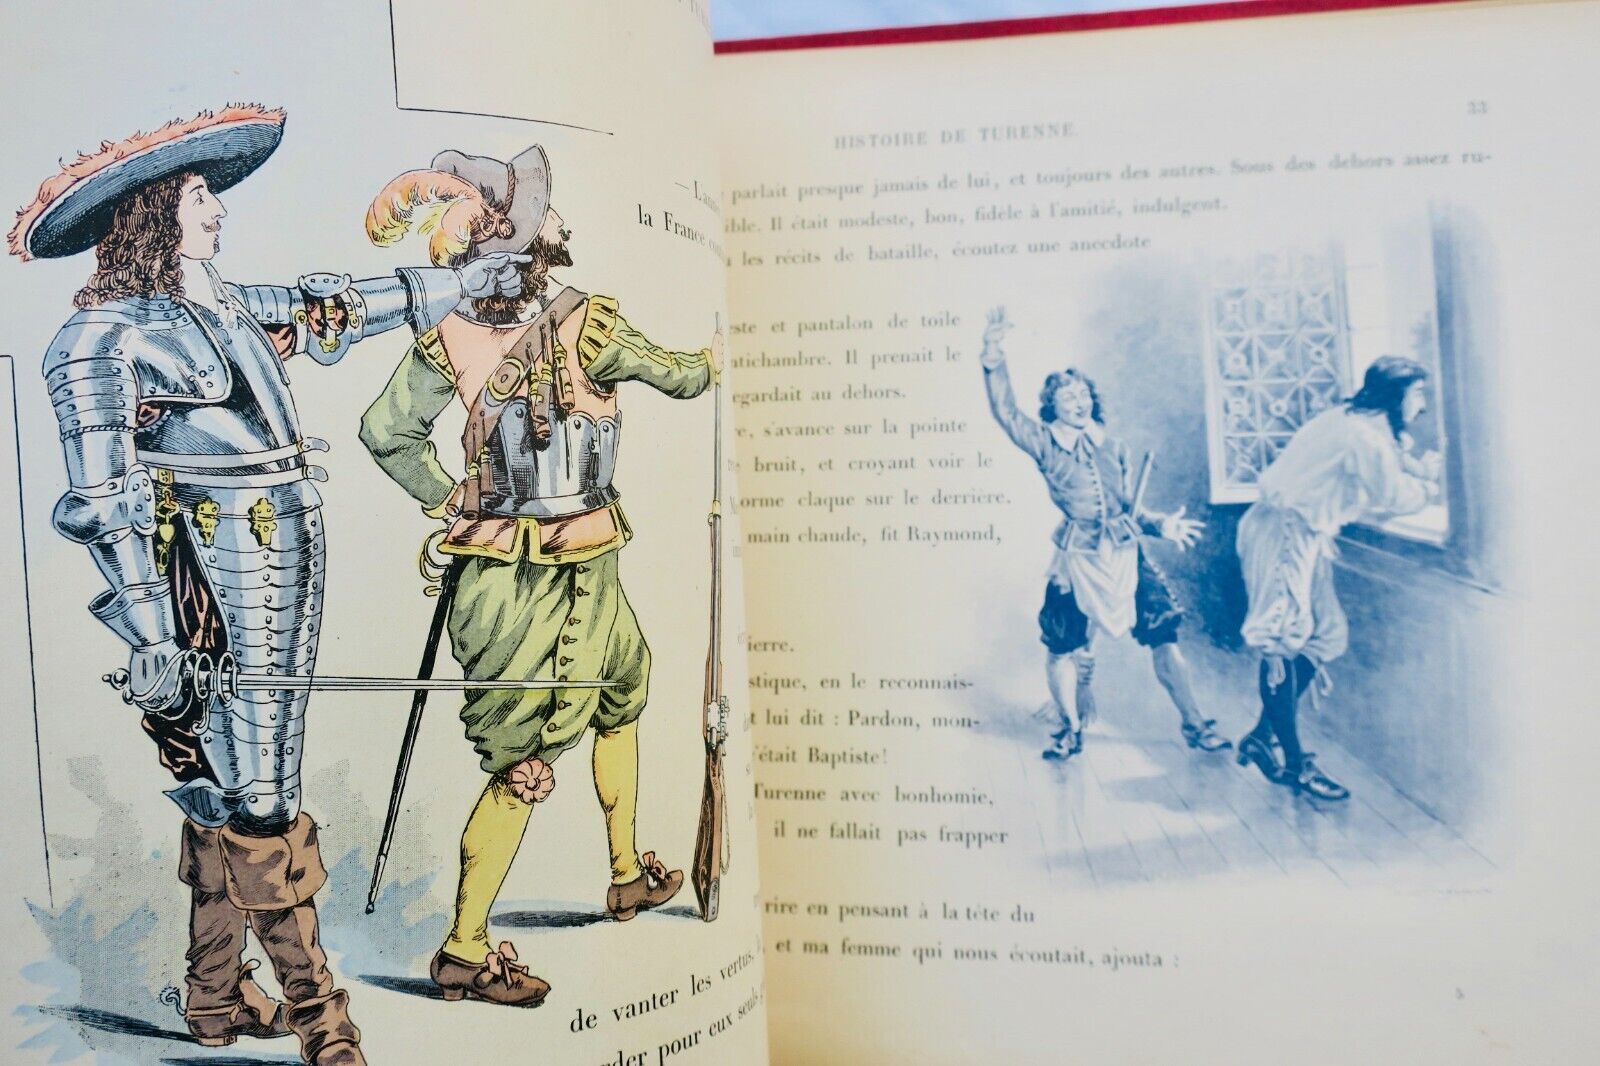 TU
— L'ann
la France con
de vanter les vertus,
nder pour eux seuls
33
HISTOIRE DE TURENNE.
parlait presque jamais de lui, et toujours des autres. Sous des dehors assez ru-
ible. Il était modeste, bon, fidèle à l'amitié, indulgent.
les récits de bataille, écoutez une anecdote
este et pantalon de toile
ntichambre. Il prenait le
egardait au dehors.
re, s'avance sur la pointe
bruit, et croyant voir le
orme claque sur le derrière.
main chaude, fit Raymond,
ierre.
stique, en le reconnais-
t lui dit : Pardon, mon-
'était Baptiste!
Turenne avec bonhomie,
il ne fallait pas frapper
rire en pensant à la tête du
et ma femme qui nous écoutait, ajouta :